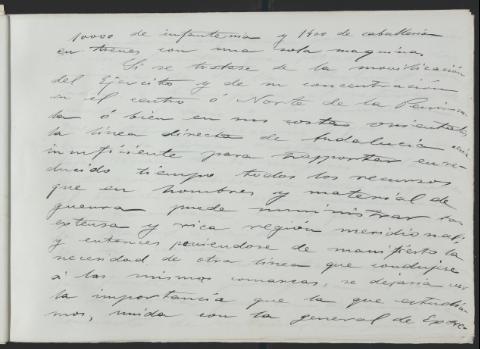 10000 de infanteria y 1400 de caballeria
en trenes con una sola maquina.
Si se tratase de la movilización
del Ejército y de su concentración
en el centro ó Norte de la Penínsu
la ó bien en sus costas orientales
la línea directa de Andalucía seria
insuficiente para trasportar en re
ducido tiempo todos los recursos
que en hombres y material de
guerra puede suministrar tan
extensa y rica región meridional;
y entonces poniéndose de manifiesto la
necesidad de otra línea que condujese
á las mismas comarcas, se dejaria ver
la importáncia que la que estudia
mos, unida con la general de Extre